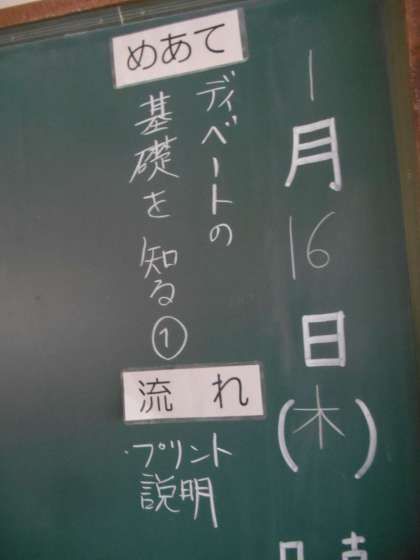 1月16日(木)
めあて
ディベートの
基礎を知る①
流れ
・プリント
説明